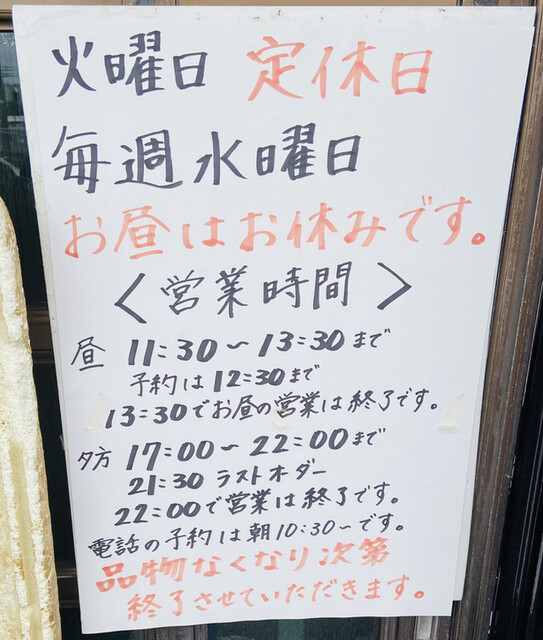 火曜日 定休日
毎週水曜日
お昼はお休みです。
〈営業時間〉
昼 11:30～13:30まで
予約は12:30まで
13:30でお昼の営業は終了です。
夕方 17:00～22:00まで
21:30 ラストオダー
22:00で営業は終了です。
電話の予約は朝10:30～です。
品物なくなり次第
終了させていただきます。